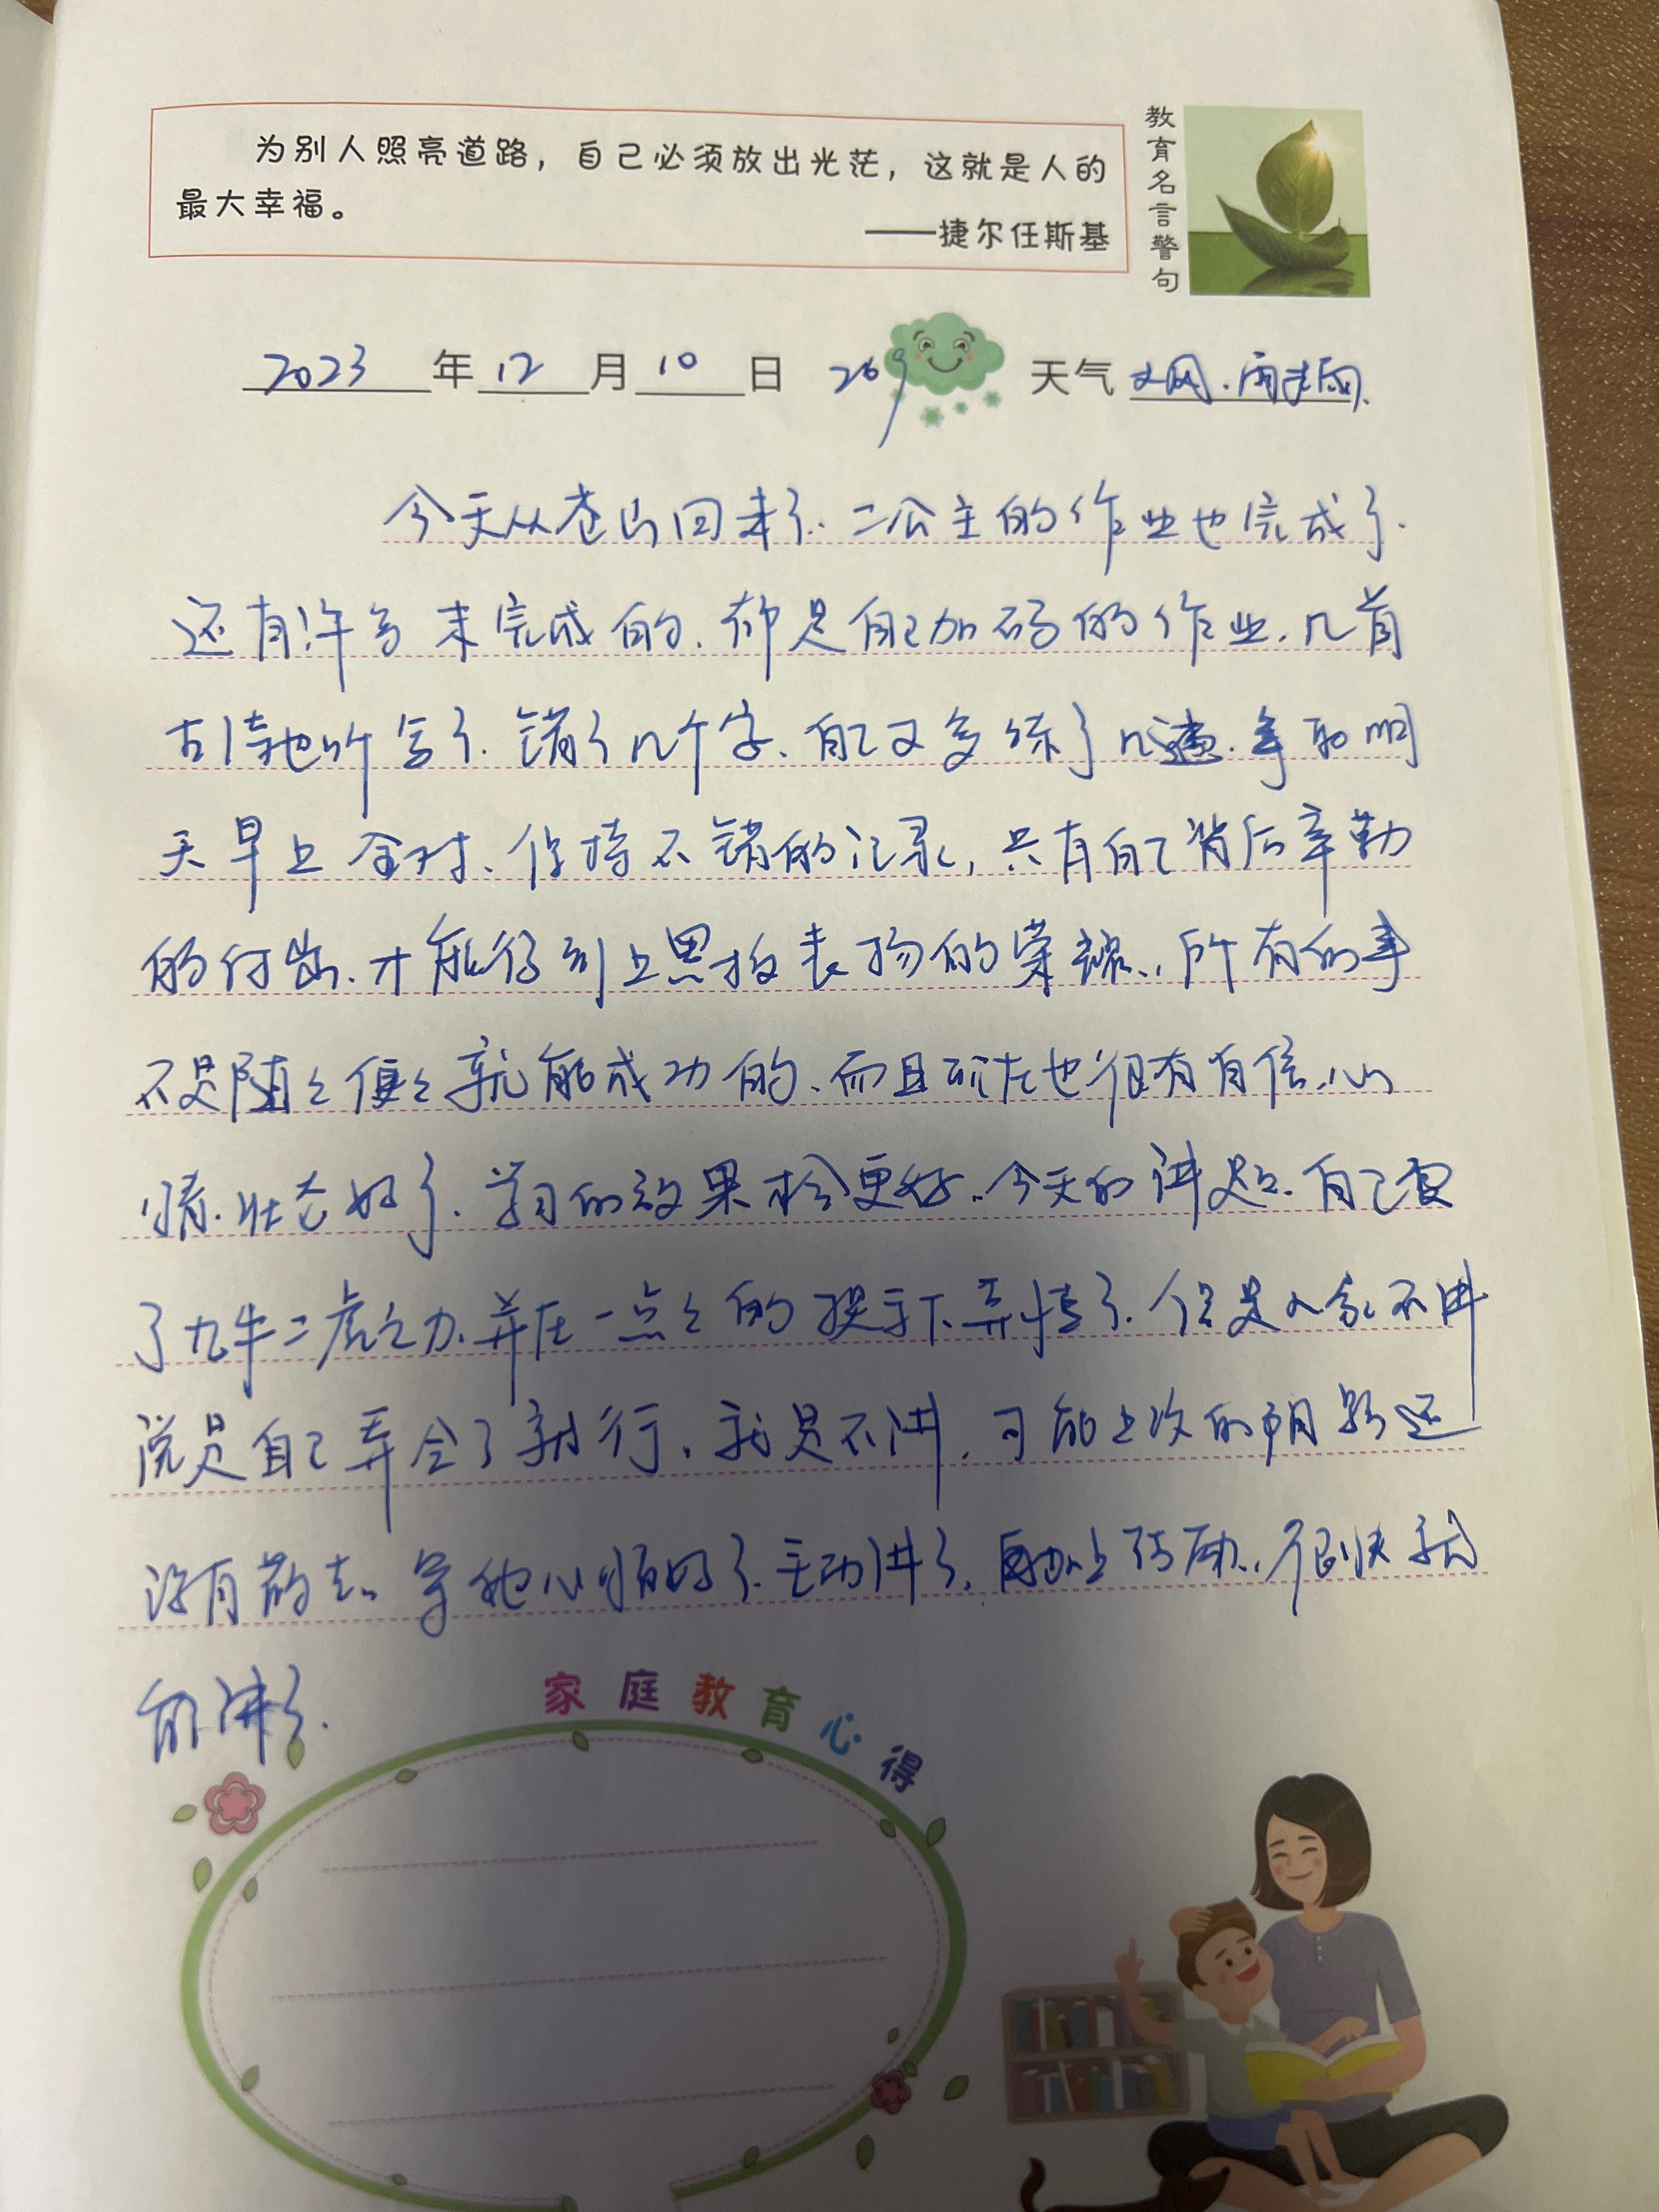 为别人照亮道路，自己必须放出光芒，这就是人的
最大幸福。
——捷尔任斯基
教育名言警句
2023年12月10日 269 天气
今天从苍山回来了.二公主的作业也完成了.
还有许多未完成的.都是自己加码的作业.几首
古诗她听写了.错了几个字.自己又多练了几遍.争取明
天早上全对、保持不错的记录,只有自己背后辛勤
的付出.才能得到上黑板表扬的荣耀.所有的事
不是随々便々就能成功的、而且现在也很有自信.心
情.状态好了.学习的效果才会更好.今天的讲题.自己费
了九牛二虎之力.并在一点々的提示下弄懂了.但是人家不讲
说是自己弄会了就行.就是不讲.可能上次的阴影还
没有散去.等她心情好了.主动讲了.再加上鼓励.很快就
能讲了.
家庭教育心得